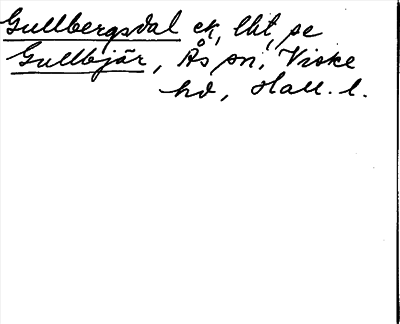 Gullbergsdal ek, lht, se
Gullbjär, Ås sn, Viske
hd, Hall. l.